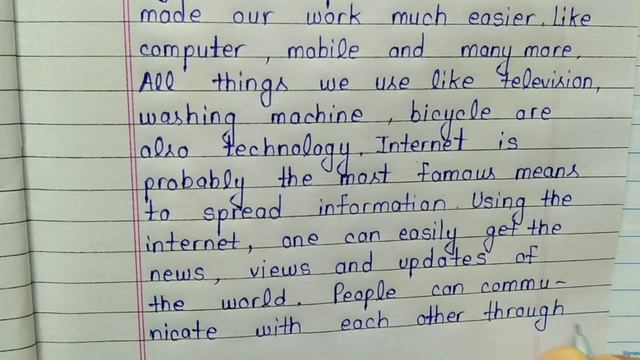 made our work much easier, like
computer, mobile and many more.
All things we use like television,
washing machine, bicycle are
also technology. Internet is
probably the most famous means
to spread information. Using the
internet, one can easily get the
news, views and updates of
the world. People can commu-
nicate with each other through